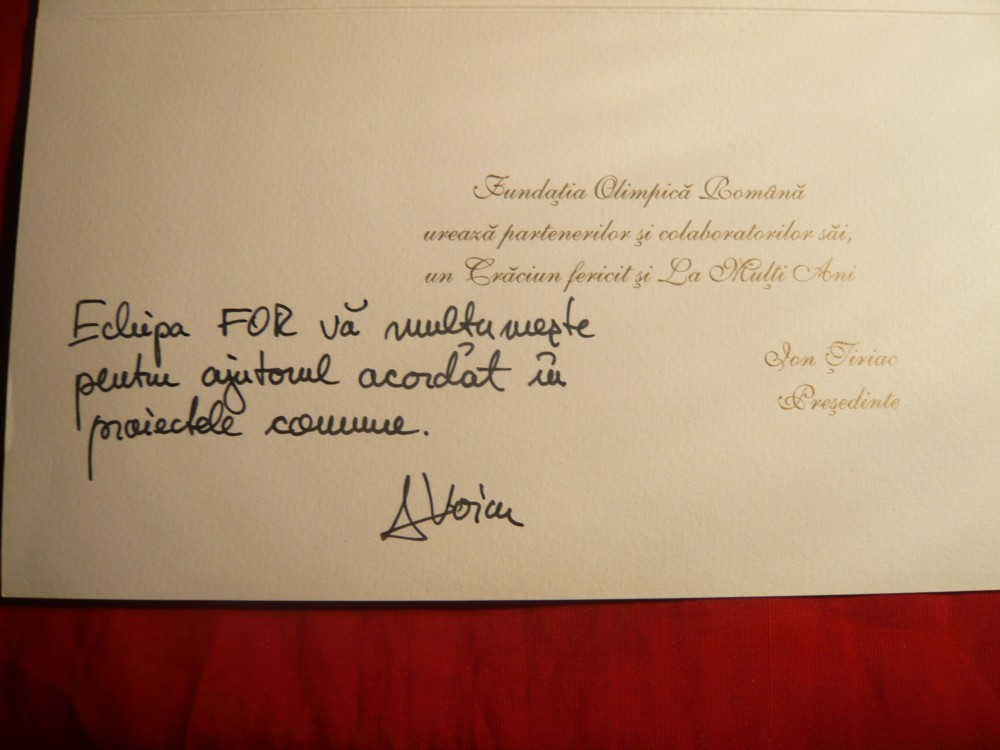 Fundaţia Olimpică Română
urează partenerilor şi colaboratorilor săi,
un Crăciun fericit şi La Mulţi Ani
Ion Ţiriac
Preşedinte
Echipa FOR vă multumeşte
pentru ajutorul acordat în
proiectele comune.
AVoicu